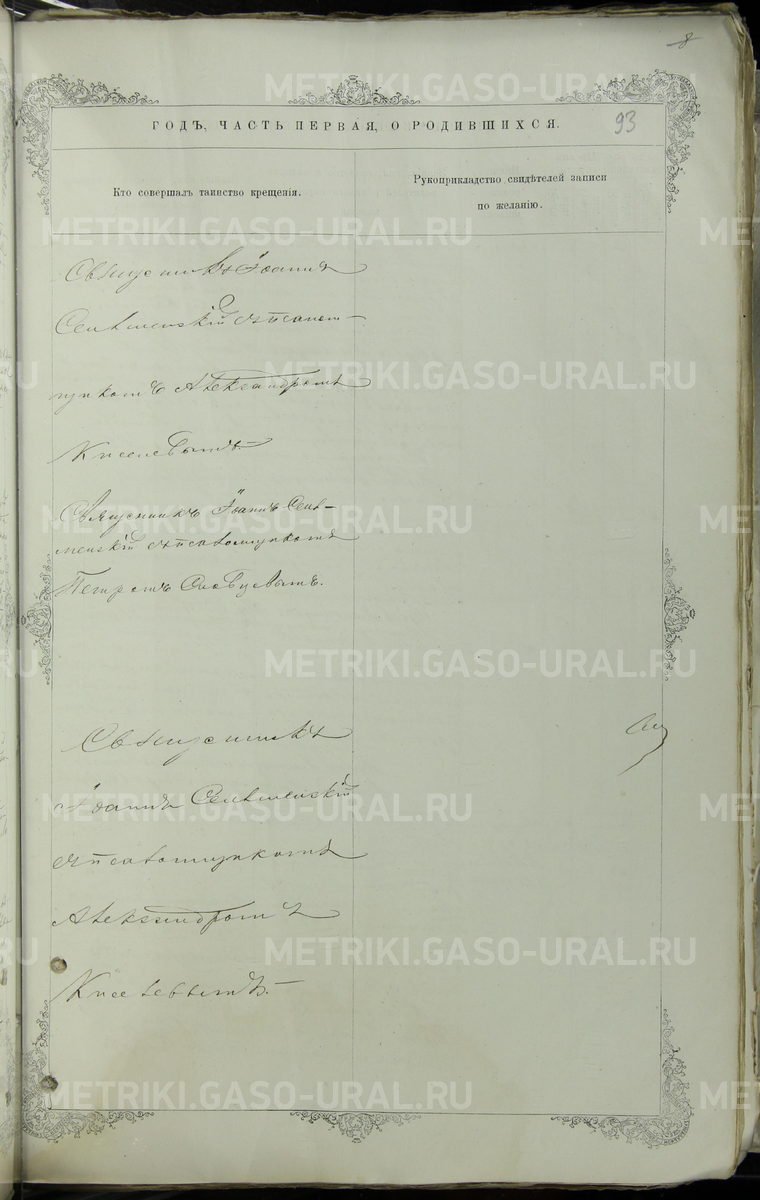 8
93
ГОДЪ, ЧАСТЬ ПЕРВАЯ, О РОДИВШИХСЯ.
Кто совершалъ таинство крещенія.
Рукоприкладство свидѣтелей записи
по желанію.
Священникъ Іоаннъ
съ псалом-
щикомъ Александромъ
Киселевымъ.
Священникъ Іоаннъ
съ псаломщикомъ
Петромъ Словцовымъ.
Священникъ
Іоаннъ
съ псаломщикомъ
Александромъ
Киселевымъ.
METRIKI.GASO-URAL.RU